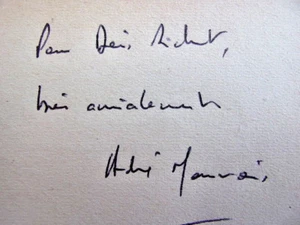 Pour Denis Richet,
très amicalement
André Maurois.